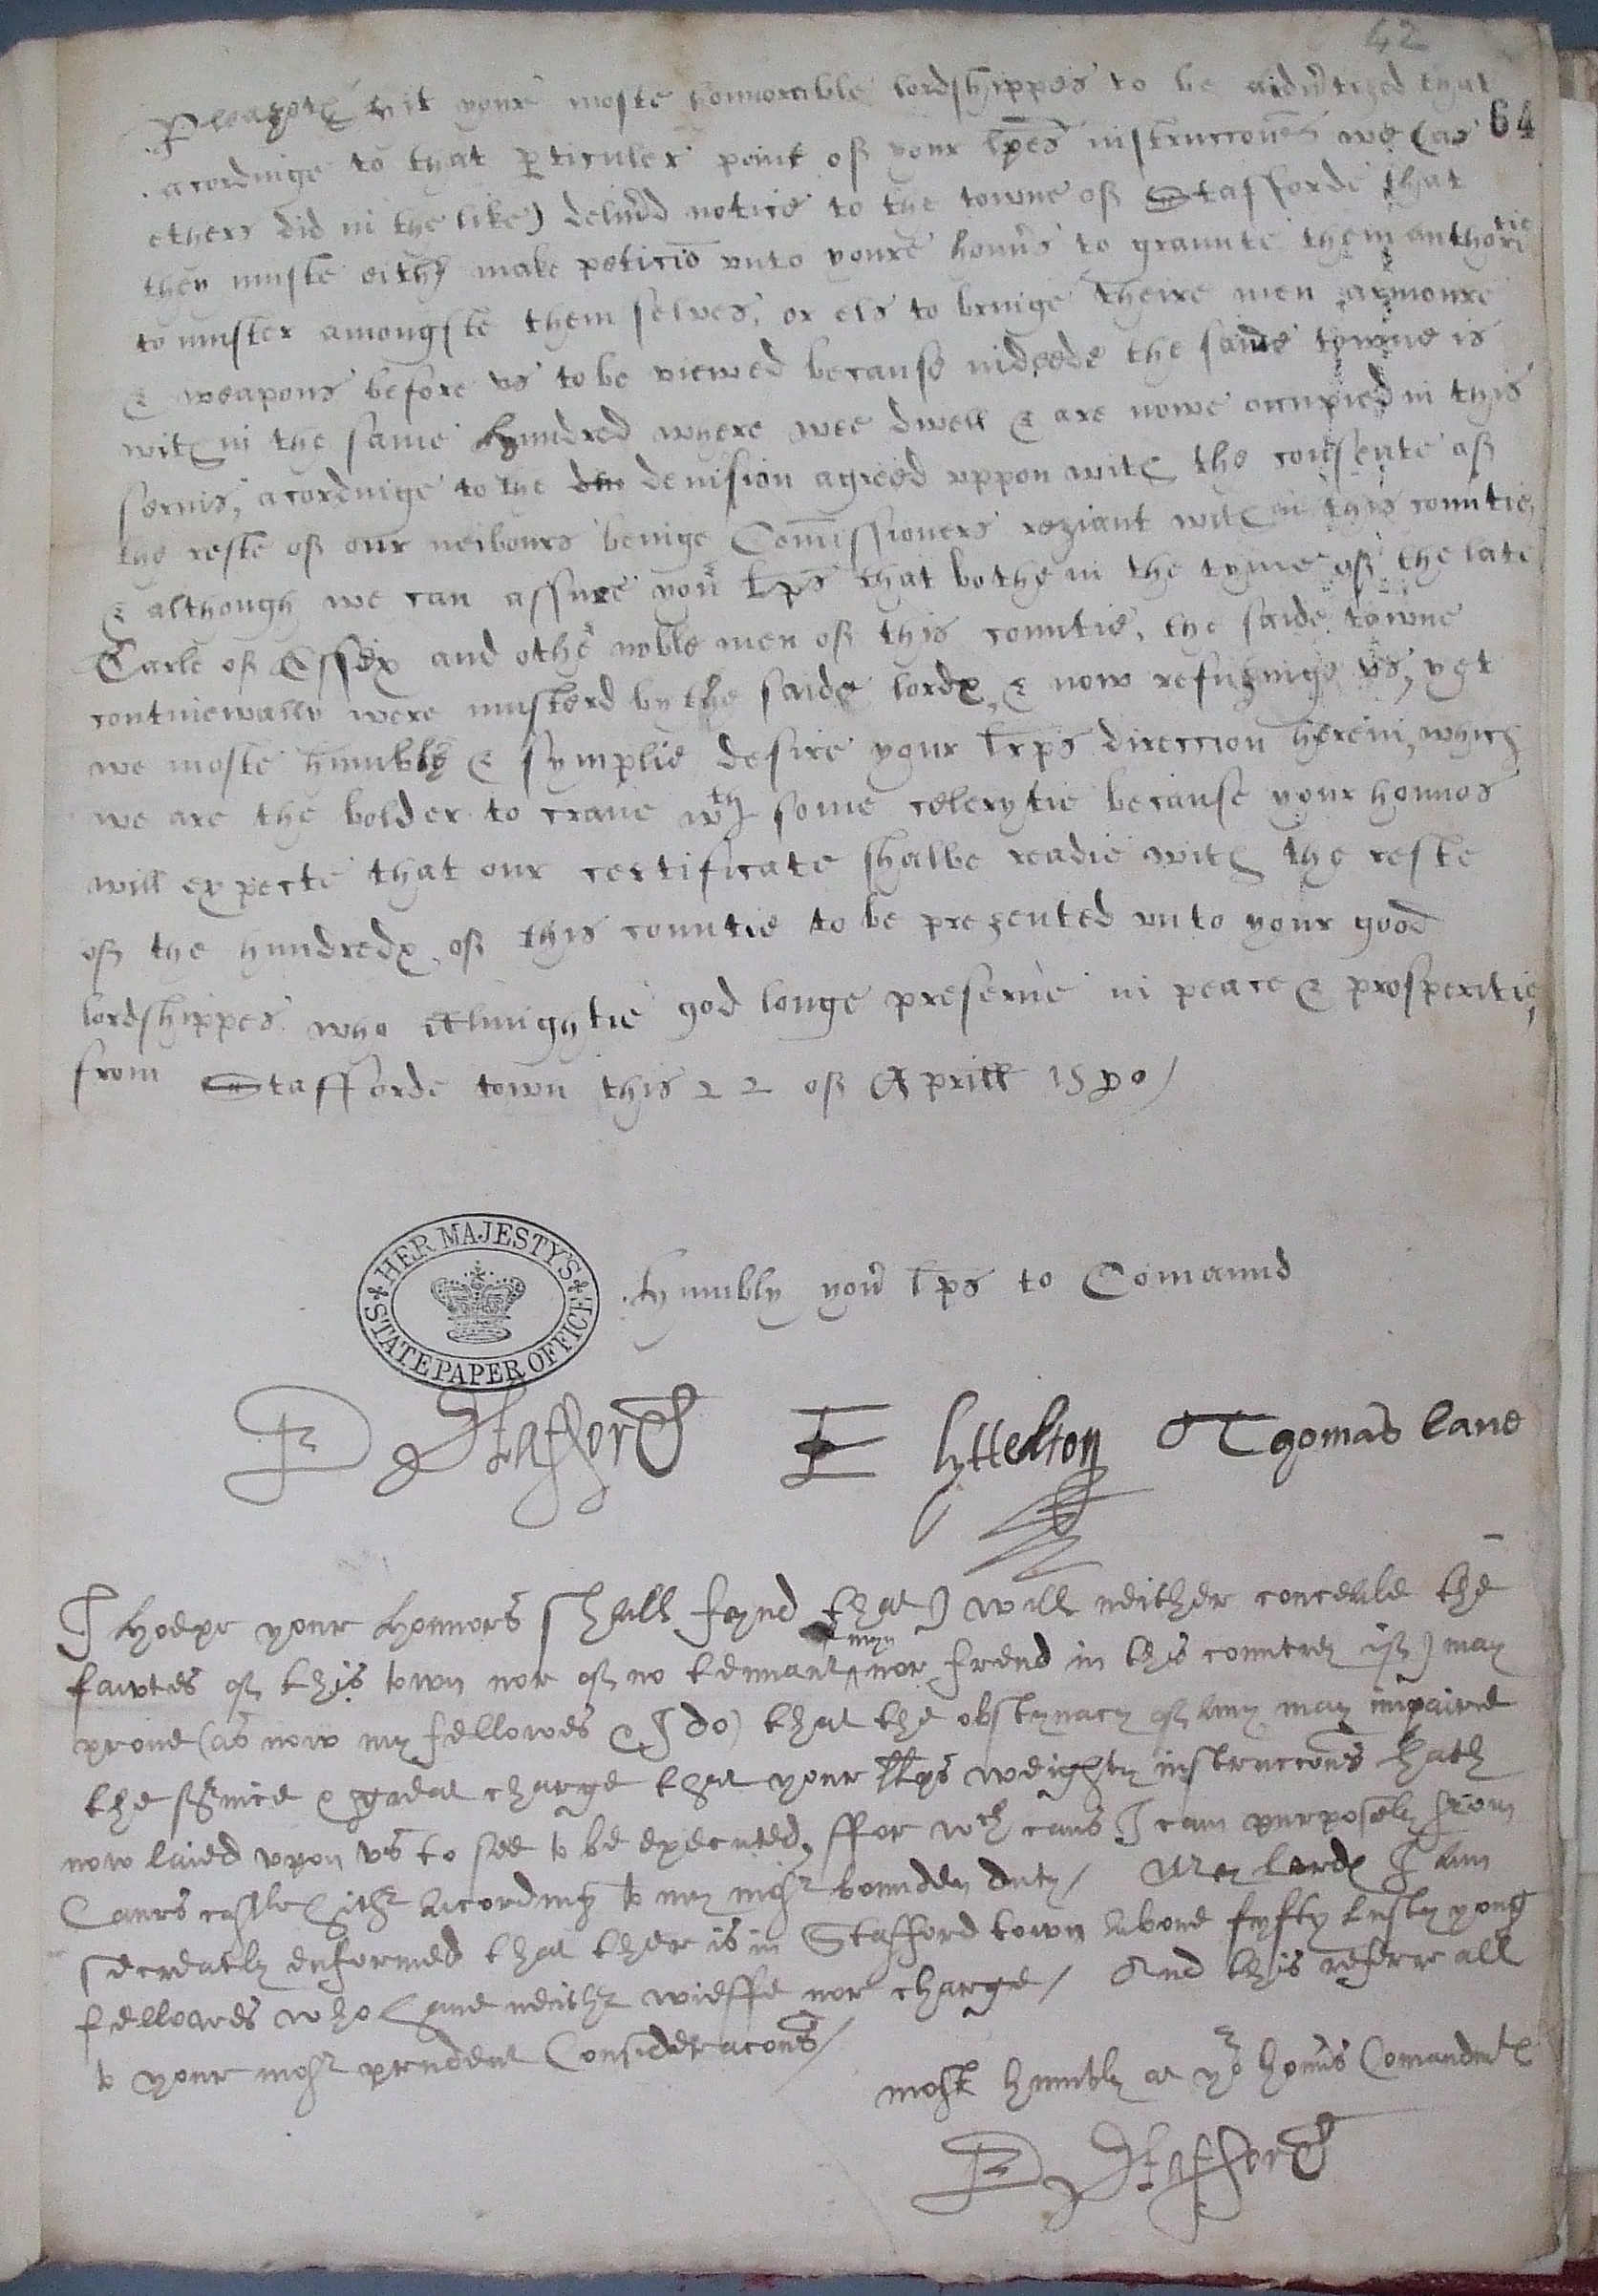 42
64
Pleazeth hit youre moste honnorable lordshippes to be aduertized that
acordinge to that perticuler point of your lpes instruccions we (as
others did in the like) deliuerd notice to the towne of Stafforde that
they muste either make peticio vnto youre honurs to graunte them authoritie
to muster amongste them selves, or els to bringe theire men armoure
& weapons before vs to be viewed because indeede the saide towne is
with in the same hundred where wee dwell & are nowe occupied in this
servis, acordinge to the devision agreed vppon with the consente of
the reste of our neibours beinge Comissioners reziant with in this countie,
& although we can assure your Lps that bothe in the tyme of the late
Earle of Essex and other noble men of this countie, the saide towne
continewally were musterd by the saide lordes, & now refuzinge vs, yet
we moste humblie & symplie desire your lrps direccion herein, which
we are the bolder to crave wth some celerytie because your honnos
will expecte that our certificate shalbe readie with the reste
of the hundredes of this countie to be prezented vnto your good
lordshippes who Almightie god longe preserve in peace & prosperitie,
from Stafforde town this 22 of Aprill 1580/
HER MAJESTY'S STATE PAPER OFFICE
Humbly your lps to Comaund
E Stafford E Lyttelton Thomas Lane
I hoepe your honnors shall fynd that I will neither conceale the
fawtes of this town nor of no tennant myn nor frend in this countrey if I may
prove (as now my fellowes & I do) that the obstynacy of any may impaire
the service & great charge that your llps weighty instruccons hath
now laied vpon vs to see to be executed, ffor wch caus I cam purposely from
Caurs castle hither according to my most bounden duty/ My lordes I am
secreatly enformed that ther is in Stafford town above fyfty lusty yong
fellowes who have neither wieffe nor charge/ And this referr all
to your most prudent Consideracons/
most humbly at yor honurs Comandmt
E Stafford